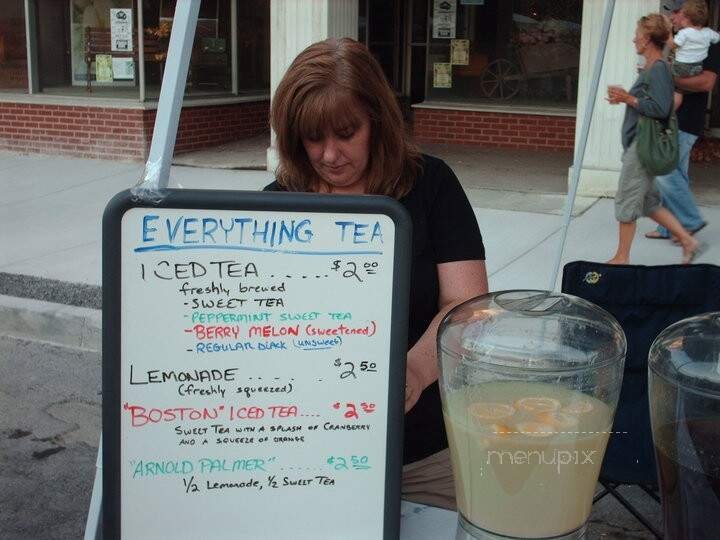 EVERYTHING TEA
ICED TEA ..... $2.00
freshly brewed
- SWEET TEA
- PEPPERMINT SWEET TEA
- BERRY MELON (sweetened)
- REGULAR BLACK (UNSWEET)
LEMONADE .. . . . $2.50
(freshly squeezed)
"BOSTON" ICED TEA.... $2.50
SWEET TEA WITH A SPLASH OF CRANBERRY
AND A SQUEEZE OF ORANGE
"ARNOLD PALMER" ...... $2.50
1/2 Lemonade, 1/2 SWEET TEA
menupix